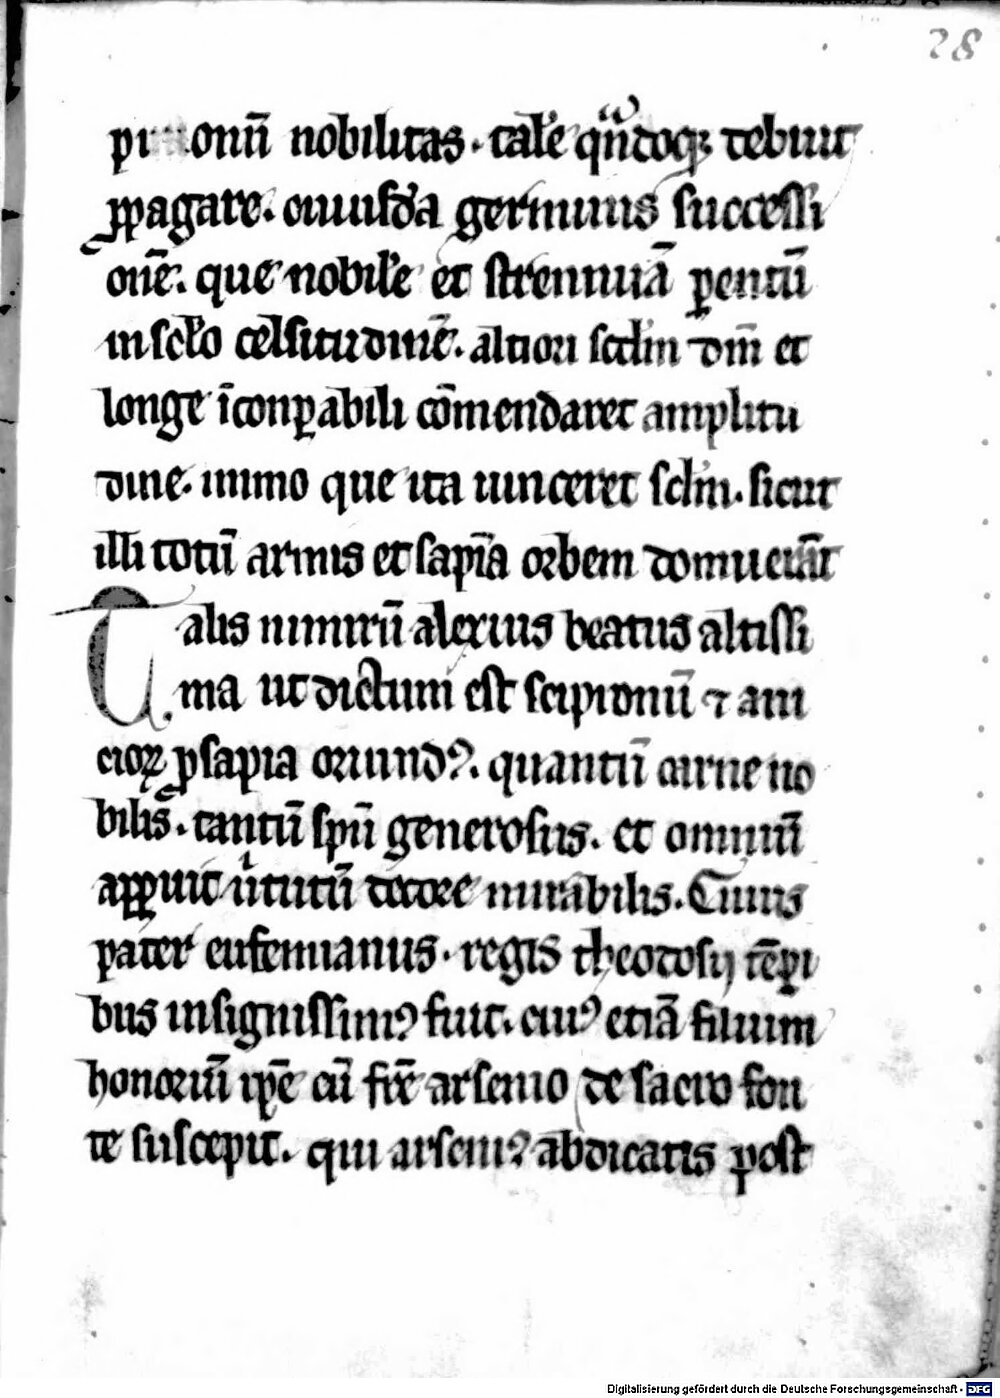 28
onū nobilitas. talē qn̄doq; debuit
ꝓpagare. cuiusdā germinis successi
onē. que nobilē et strennuā pentū
in sclo celsitudinē. altiori sclm dm̄ et
longe īconꝑabili cōmendaret amplitu
dine. immo que ita uinceret sclm. sicut
illi totū armis et sapīa orbem domuerāt
Talis nimirū alexius beatus altissi
ma ut dictum est scipionū ⁊ ani
cioꝝ ꝓsapia oriundꝰ. quantū carne no
bilis. tantū spū generosus. et omniū
apꝑuit ūtutū decore mirabilis. Cuius
pater eufemianus. regis theodosij tēꝑi
bus insignissimꝰ fuit. cuiꝰ etiā filium
honoriū ip̄e cū fr̄e arsenio de sacro fon
te suscepit. qui arseniꝰ abdicatis post
Digitalisierung gefördert durch die Deutsche Forschungsgemeinschaft - DFG